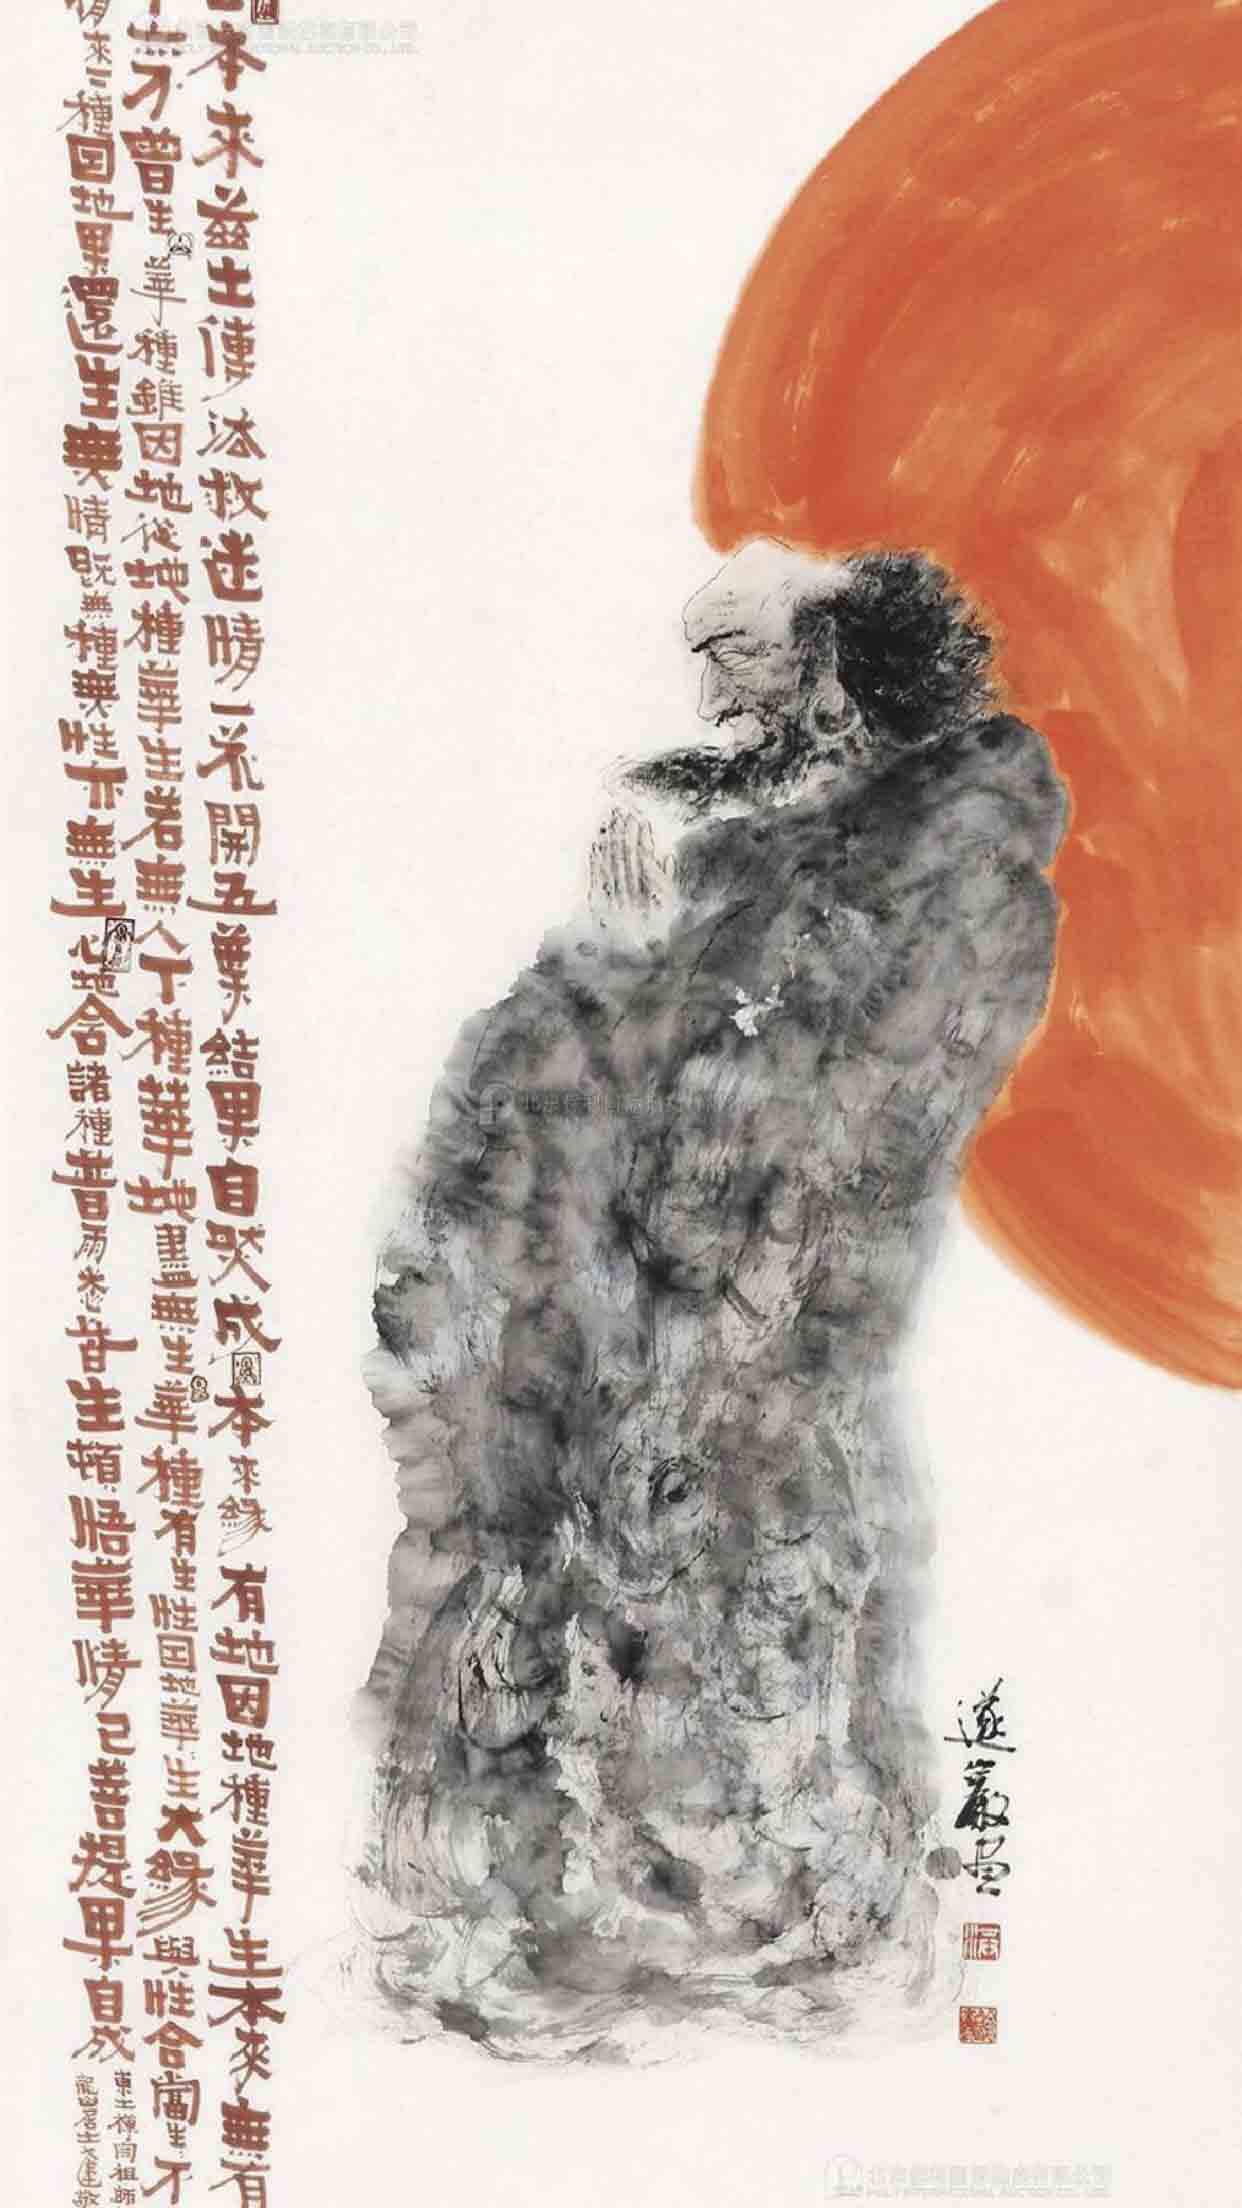 本來茲土傳法救迷情一花開五葉結果自然成本來緣有地因地種華生本來無有
無不曾生華種雖因地從地種華生若無人下種華地盡無生華種有生性因地華生大緣與性合當生不
情來下種因地果還生無情既無種無性亦無生心地含諸種普雨悉皆生頓悟華情已菩提果自成
東土禪祖師
居士
嚴畫